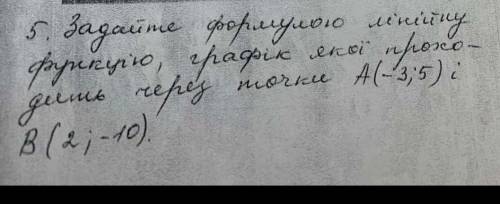 5. Задайте формулою лінійну
функцію, графік якої прохо-
дить через точки А(-3;5) і
В(2;-10).